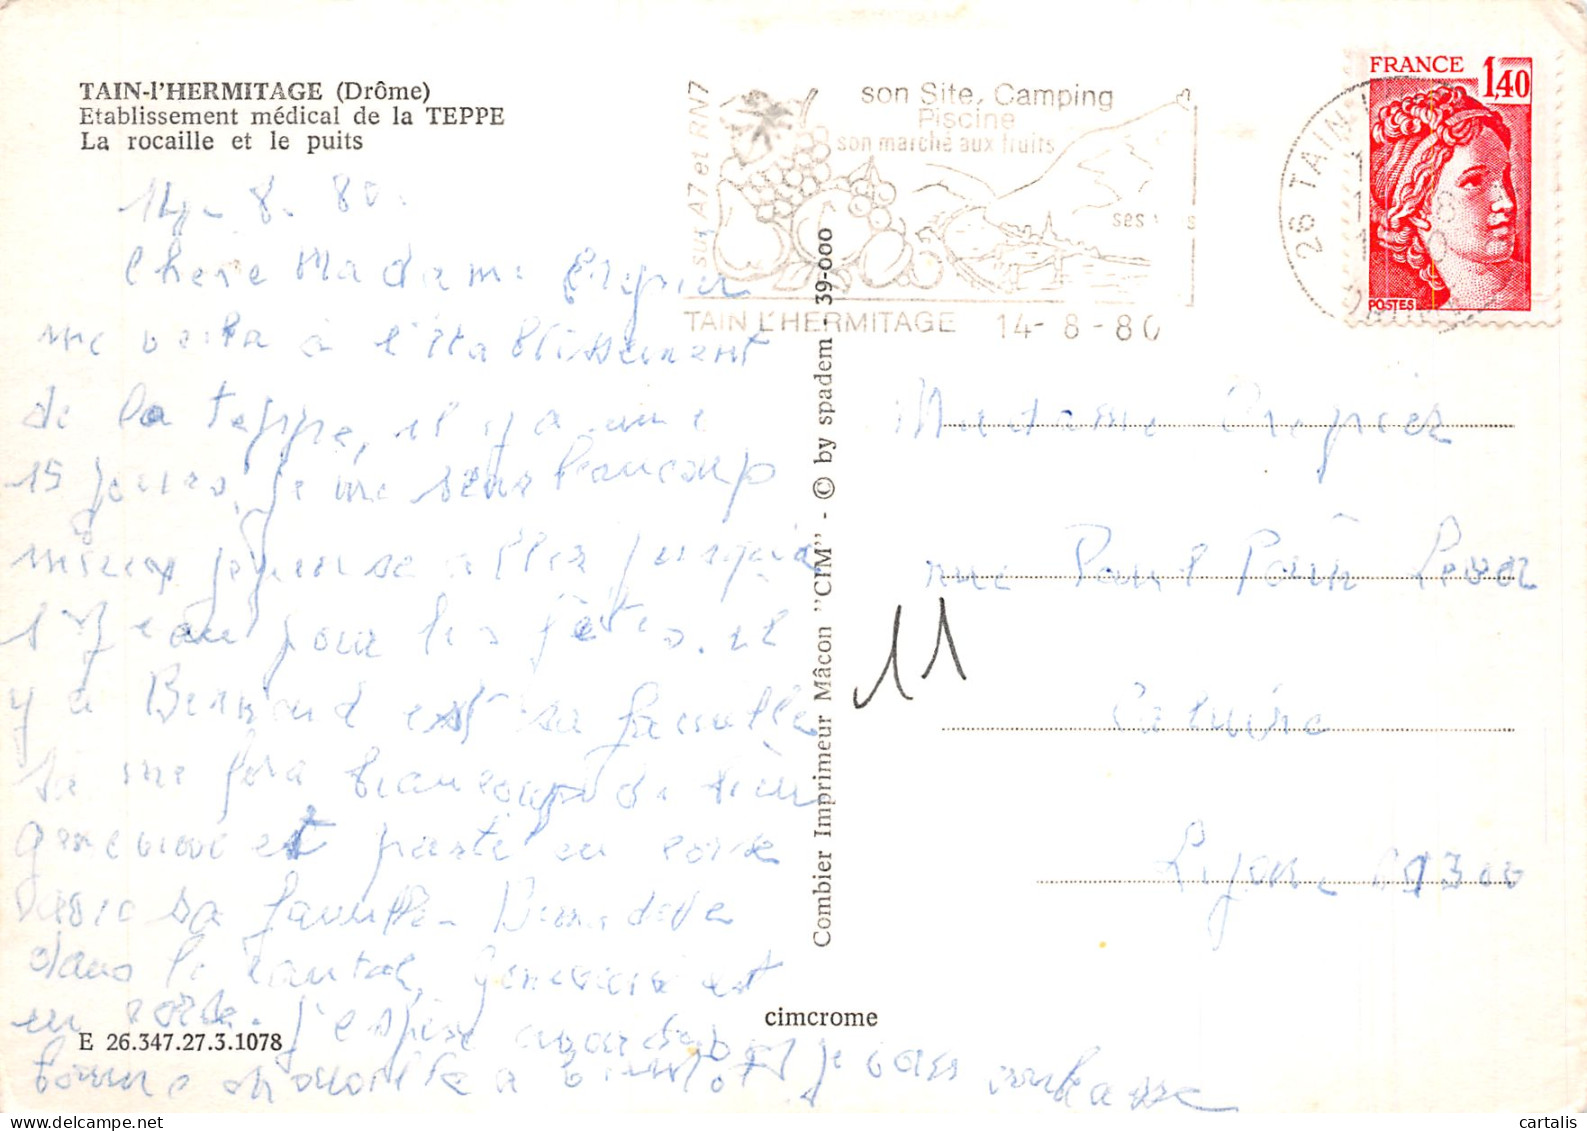 TAIN-l'HERMITAGE (Drôme)
Etablissement médical de la TEPPE
La rocaille et le puits
14-8-80.
Chere Madame
me voila à l'établissement
de la teppe, il y a une
15 jours, je me sens beaucoup
mieux je pense aller jusqu'à
pour les fêtes. il
y a Bernard est sa famille
sa me fera beaucoup de bien
genevieve est parti en corse
avec sa famille - Bernadete
dans le cantal, genevieve est
en corse. j'espère avoir de
bonne nouvelle a bientot je vous embrasse
E 26.347.27.3.1078
cimcrome
Combier Imprimeur Mâcon "CIM" - © by spadem - 39-000
sur A7 et RN7
son Site, Camping
Piscine
son marché aux fruits
ses
TAIN L'HERMITAGE 14-8-80
26 TAIN
FRANCE 1,40
POSTES
Madame
rue Paul Pain Leve
11
Caluire
Lyon 69300
cartalis